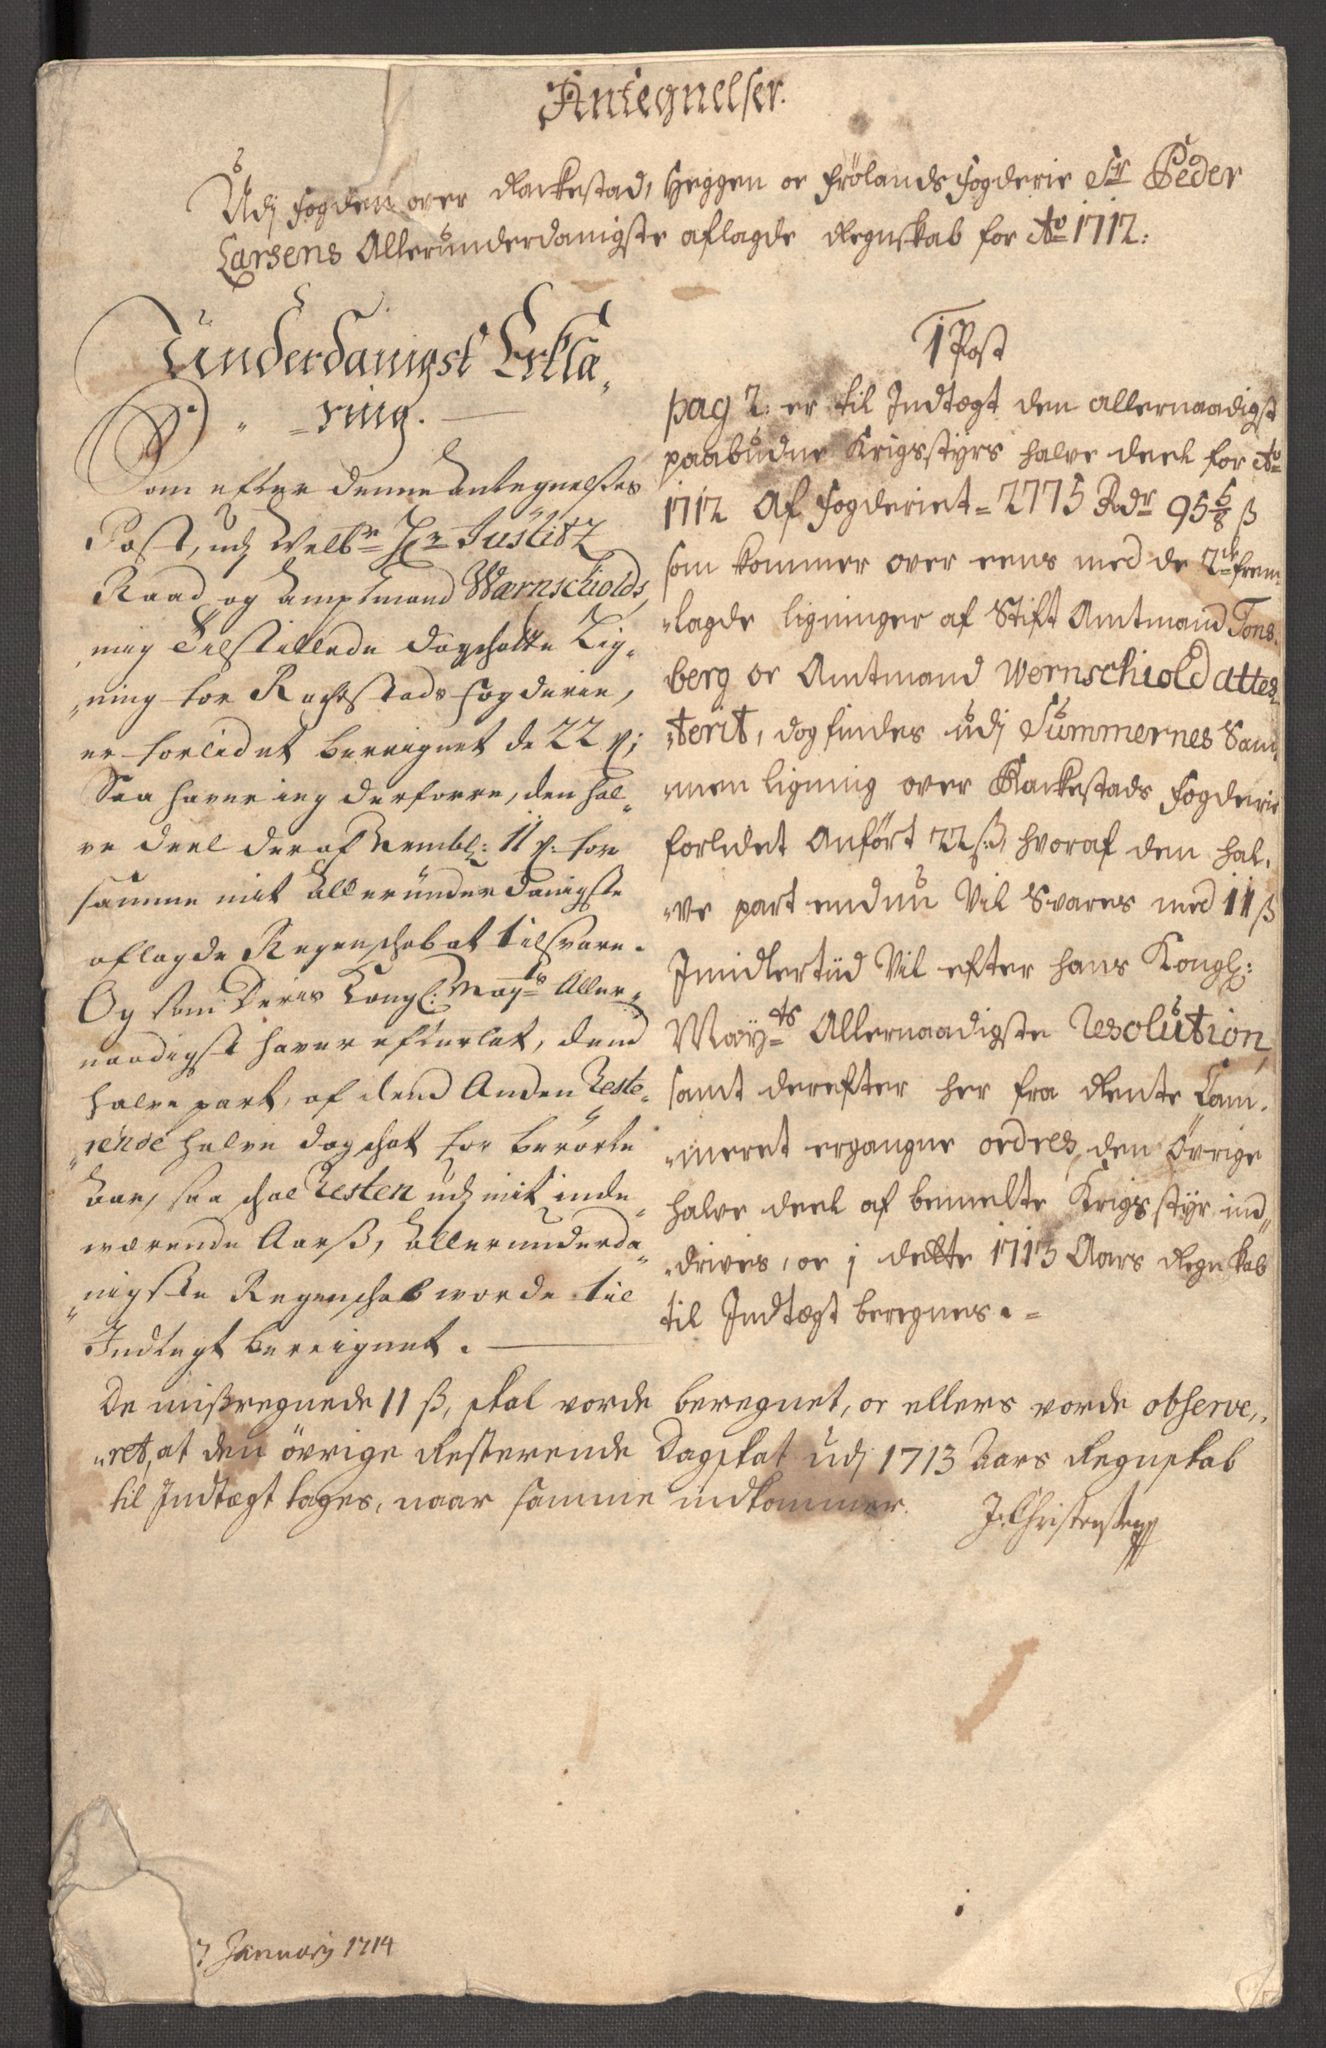 Antegnelser.
Udj fogden over Rackestad, Heggen oc frölands fogderie Sr Peder
Larsens Allerunderdanigste aflagde Regnskab for Ao 1712:
Underdanigst Erklæ„
„ring.
Som efter denne Antegnelses
Post, udj Welbrn Hr Justitz
Raad og Amptmand Wærnschiolds,
mig Tilstillede Dagskatte Lig„
„ning for Rachestads fogderie,
er forlidet bereignet de 22 ß;
Saa haver ieg derforre, den hal„
ve deel deraf Nembl: 11 ß: for
samme mit Allerunderdanigste
aflagde Regenschab at tilsvare.
Og som Deris Kongl: Mayts Aller„
naadigst haver efterlat, dend
halve part, af dend Anden Reste„
„rende halve Dagskat for berörte
Aar, saa skal Resten udj mit inde„
wærende Aarß, Allerunderda„
„nigste Regenschab worde til
Indtegt bereignet.
1 Post
pag 2: er til Indtægt den allernaadigst
paabudne Krigsstyrs halve deel for Ao
1712 Af fogderiet = 2775 Rdr 95 5/8 ß
som kommer over eens med de 2de frem„
„lagde ligninger af Stift Amtmand Tons„
berg oc Amtmand Wernschiold attes„
„terit, dog findes udj Summernes Sam„
„men ligning over Rackestads fogderie
forlidet Anfört 22 ß: hvoraf den hal„
„ve part endnu Vil Svares med 11 ß
Imidlertiid Vil efter hans Kongl:
Mayts Allernaadigste Resolution,
samt derefter her fra Rente Cam„
„meret ergangne ordres, den övrige
halve deel af bemelte Krigsstyr ind„
„drives, oc j dette 1713 Aars Regnskab
til Indtægt beregnes.=
De mißregnede 11 ß, skal vorde beregnet, oc ellers vorde observe„
„ret, at den övrige Resterende Dagskat udj 1713 Aars Regnskab
til Indtægt tages, naar samme indkommer.
J. Christensen
7 January 1714